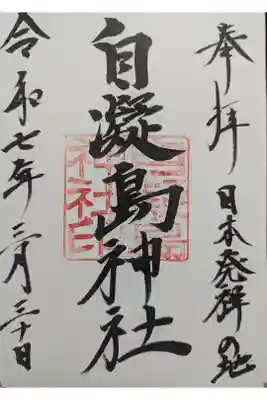 奉拝 日本発祥の地
自凝島神社
令和七年三月三十日